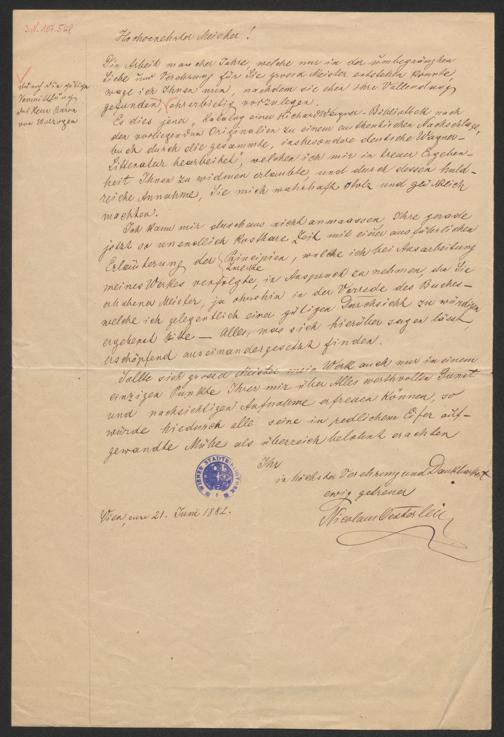 I.N. 107.548
Hochverehrter Meister!
Die Arbeit mancher Jahre, welche nur in der unbegränzten
Liebe und Verehrung für Sie grosser Meister entstehen konnte,
wage ich Ihnen nun, nachdem sie eben ihre Vollendung
gefunden, ehrerbietig vorzulegen.
durch die gütige
Vermittlung
des Herrn Baron
von Wolzogen
Es ist dies jener, Katalog einer Richard Wagner-Bibliothek nach
den vorliegenden Originalien zu einem authentischen Nachschlage-
buch durch die gesammte, insbesondere deutsche Wagner-
Litteratur bearbeitet, welchen ich mir in treuer Ergeben-
heit Ihnen zu widmen erlaubte, und durch dessen huld-
reiche Annahme, Sie mich wahrhaft stolz und glücklich
machten.
Ich kann mir durchaus nicht anmaassen, Ihre gerade
jetzt so unendlich kostbare Zeit mit einer ausführlichen
Erläuterung der Principien, welche ich bei Ausarbeitung
Zwecke
meines Werkes verfolgte, in Anspruch zu nehmen, da Sie
erhabener Meister, ja ohnehin in der Vorrede des Buches –
welche ich gelegentlich einer gütigen Durchsicht zu würdigen
ergebenst bitte – Alles, was sich hierüber sagen lässt
erschöpfend auseinandergesetzt finden.
Sollte sich mein Werk auch nur in einem
einzigen Punkte Ihrer mir über Alles werthvollen Gunst
und nachsichtigen Aufnahme erfreuen können, so
würde hiedurch alle seine in redlichem Eifer auf-
gewandte Mühe als überreich belohnt erachten
Ihr
in höchster Verehrung und Dankbarkeit
ewig getreuer
Nicolaus Oesterlein
WIENER STADTBIBLIOTHEK
Wien, am 21. Juni 1882.